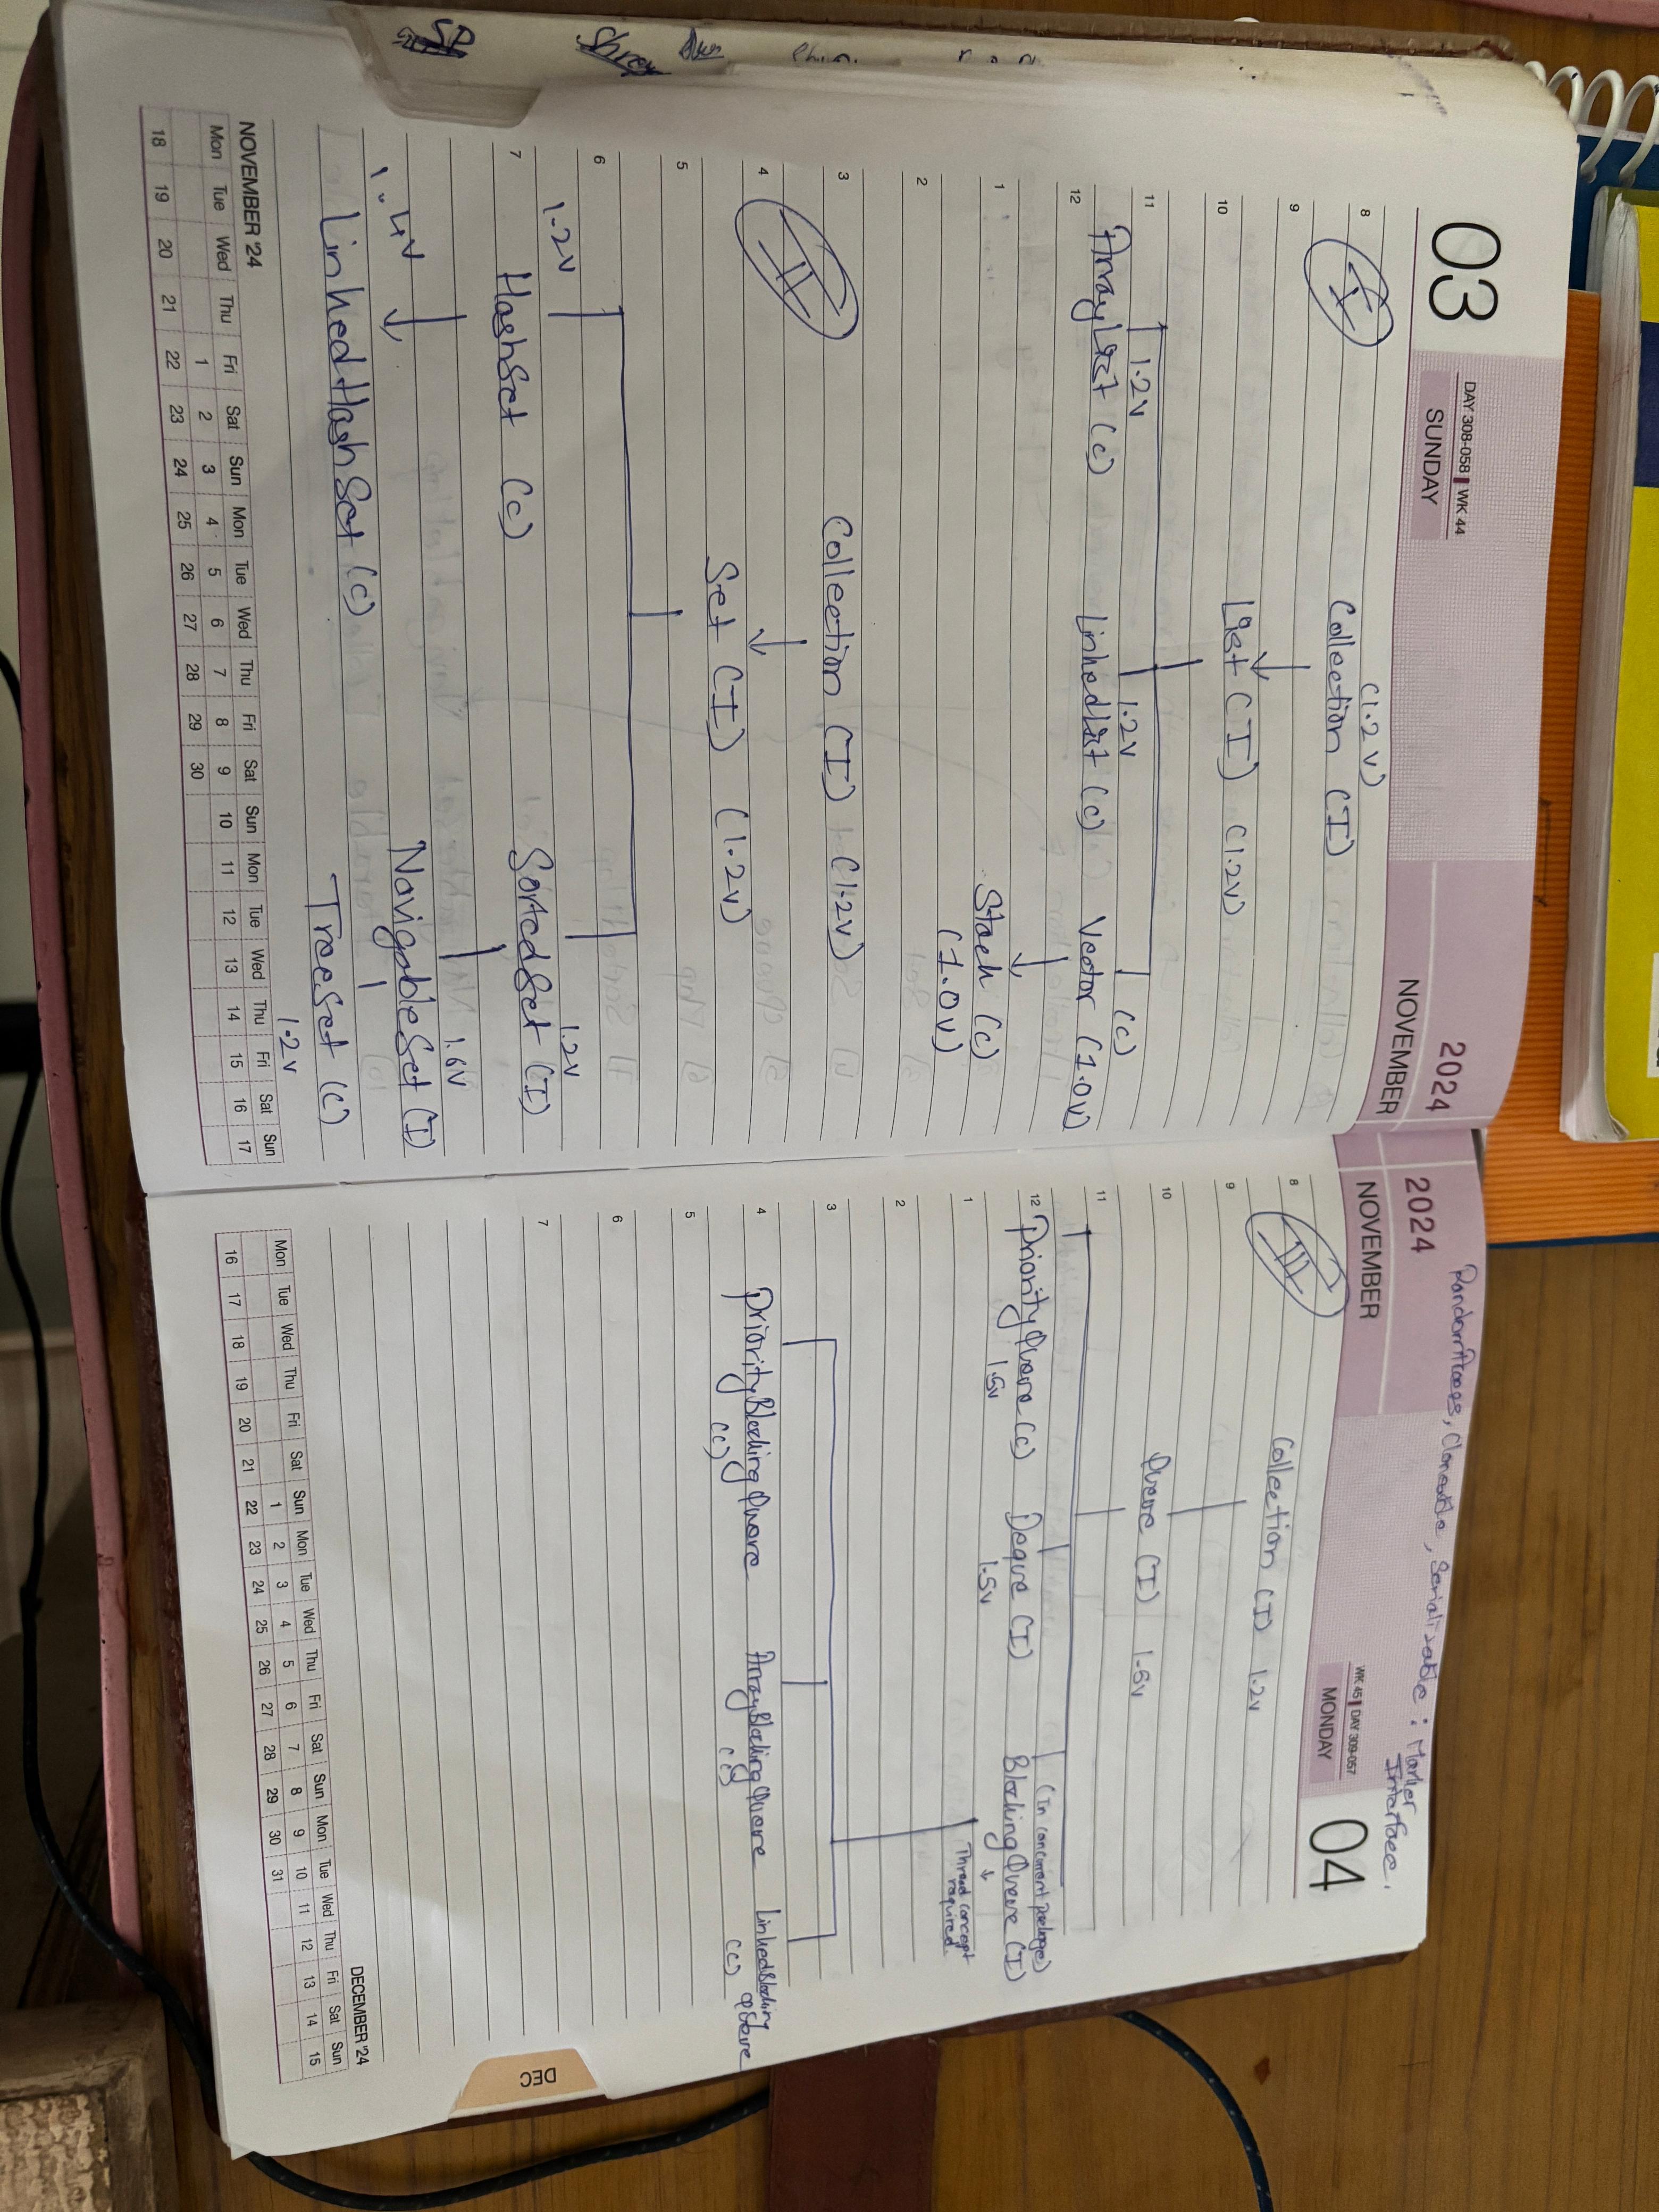 03
DAY 308-058 WK 44
SUNDAY
2024
NOVEMBER
8
I
(1.2 v)
Collection (I)
9
10
List (I) (1.2v)
11
1.2v
1.2v
(c)
12
ArrayList (c)
LinkedList (c)
Vector (1.0v)
1
Stack (c)
(1.0v)
2
3
Collection (I) (1.2v)
II
4
Set (I) (1.2v)
5
6
1.2v
1.2v
7
HashSet (c)
SortedSet (I)
1.4v
1.6v
NavigableSet (I)
LinkedHashSet (c)
TreeSet (c)
1.2v
NOVEMBER '24
Mon Tue Wed Thu Fri Sat Sun Mon Tue Wed Thu Fri Sat Sun Mon Tue Wed Thu Fri Sat Sun
1 2 3 4 5 6 7 8 9 10 11 12 13 14 15 16 17
18 19 20 21 22 23 24 25 26 27 28 29 30
Cloneable, Serializable : Marker
Interface.
2024
NOVEMBER
WK 45 DAY 309-057
MONDAY
04
8
III
Collection (I) 1.2v
9
10
Queue (I) 1.5v
11
(In concurrent package)
12
PriorityQueue (c)
Deque (I)
BlockingQueue (I)
1.5v
1.5v
1
Thread concept
required.
2
3
4
PriorityBlockingQueue
(c)
ArrayBlockingQueue
(c)
LinkedBlocking
Queue
(c)
5
6
7
DECEMBER '24
Mon Tue Wed Thu Fri Sat Sun Mon Tue Wed Thu Fri Sat Sun Mon Tue Wed Thu Fri Sat Sun
1 2 3 4 5 6 7 8 9 10 11 12 13 14 15
16 17 18 19 20 21 22 23 24 25 26 27 28 29 30 31
DEC